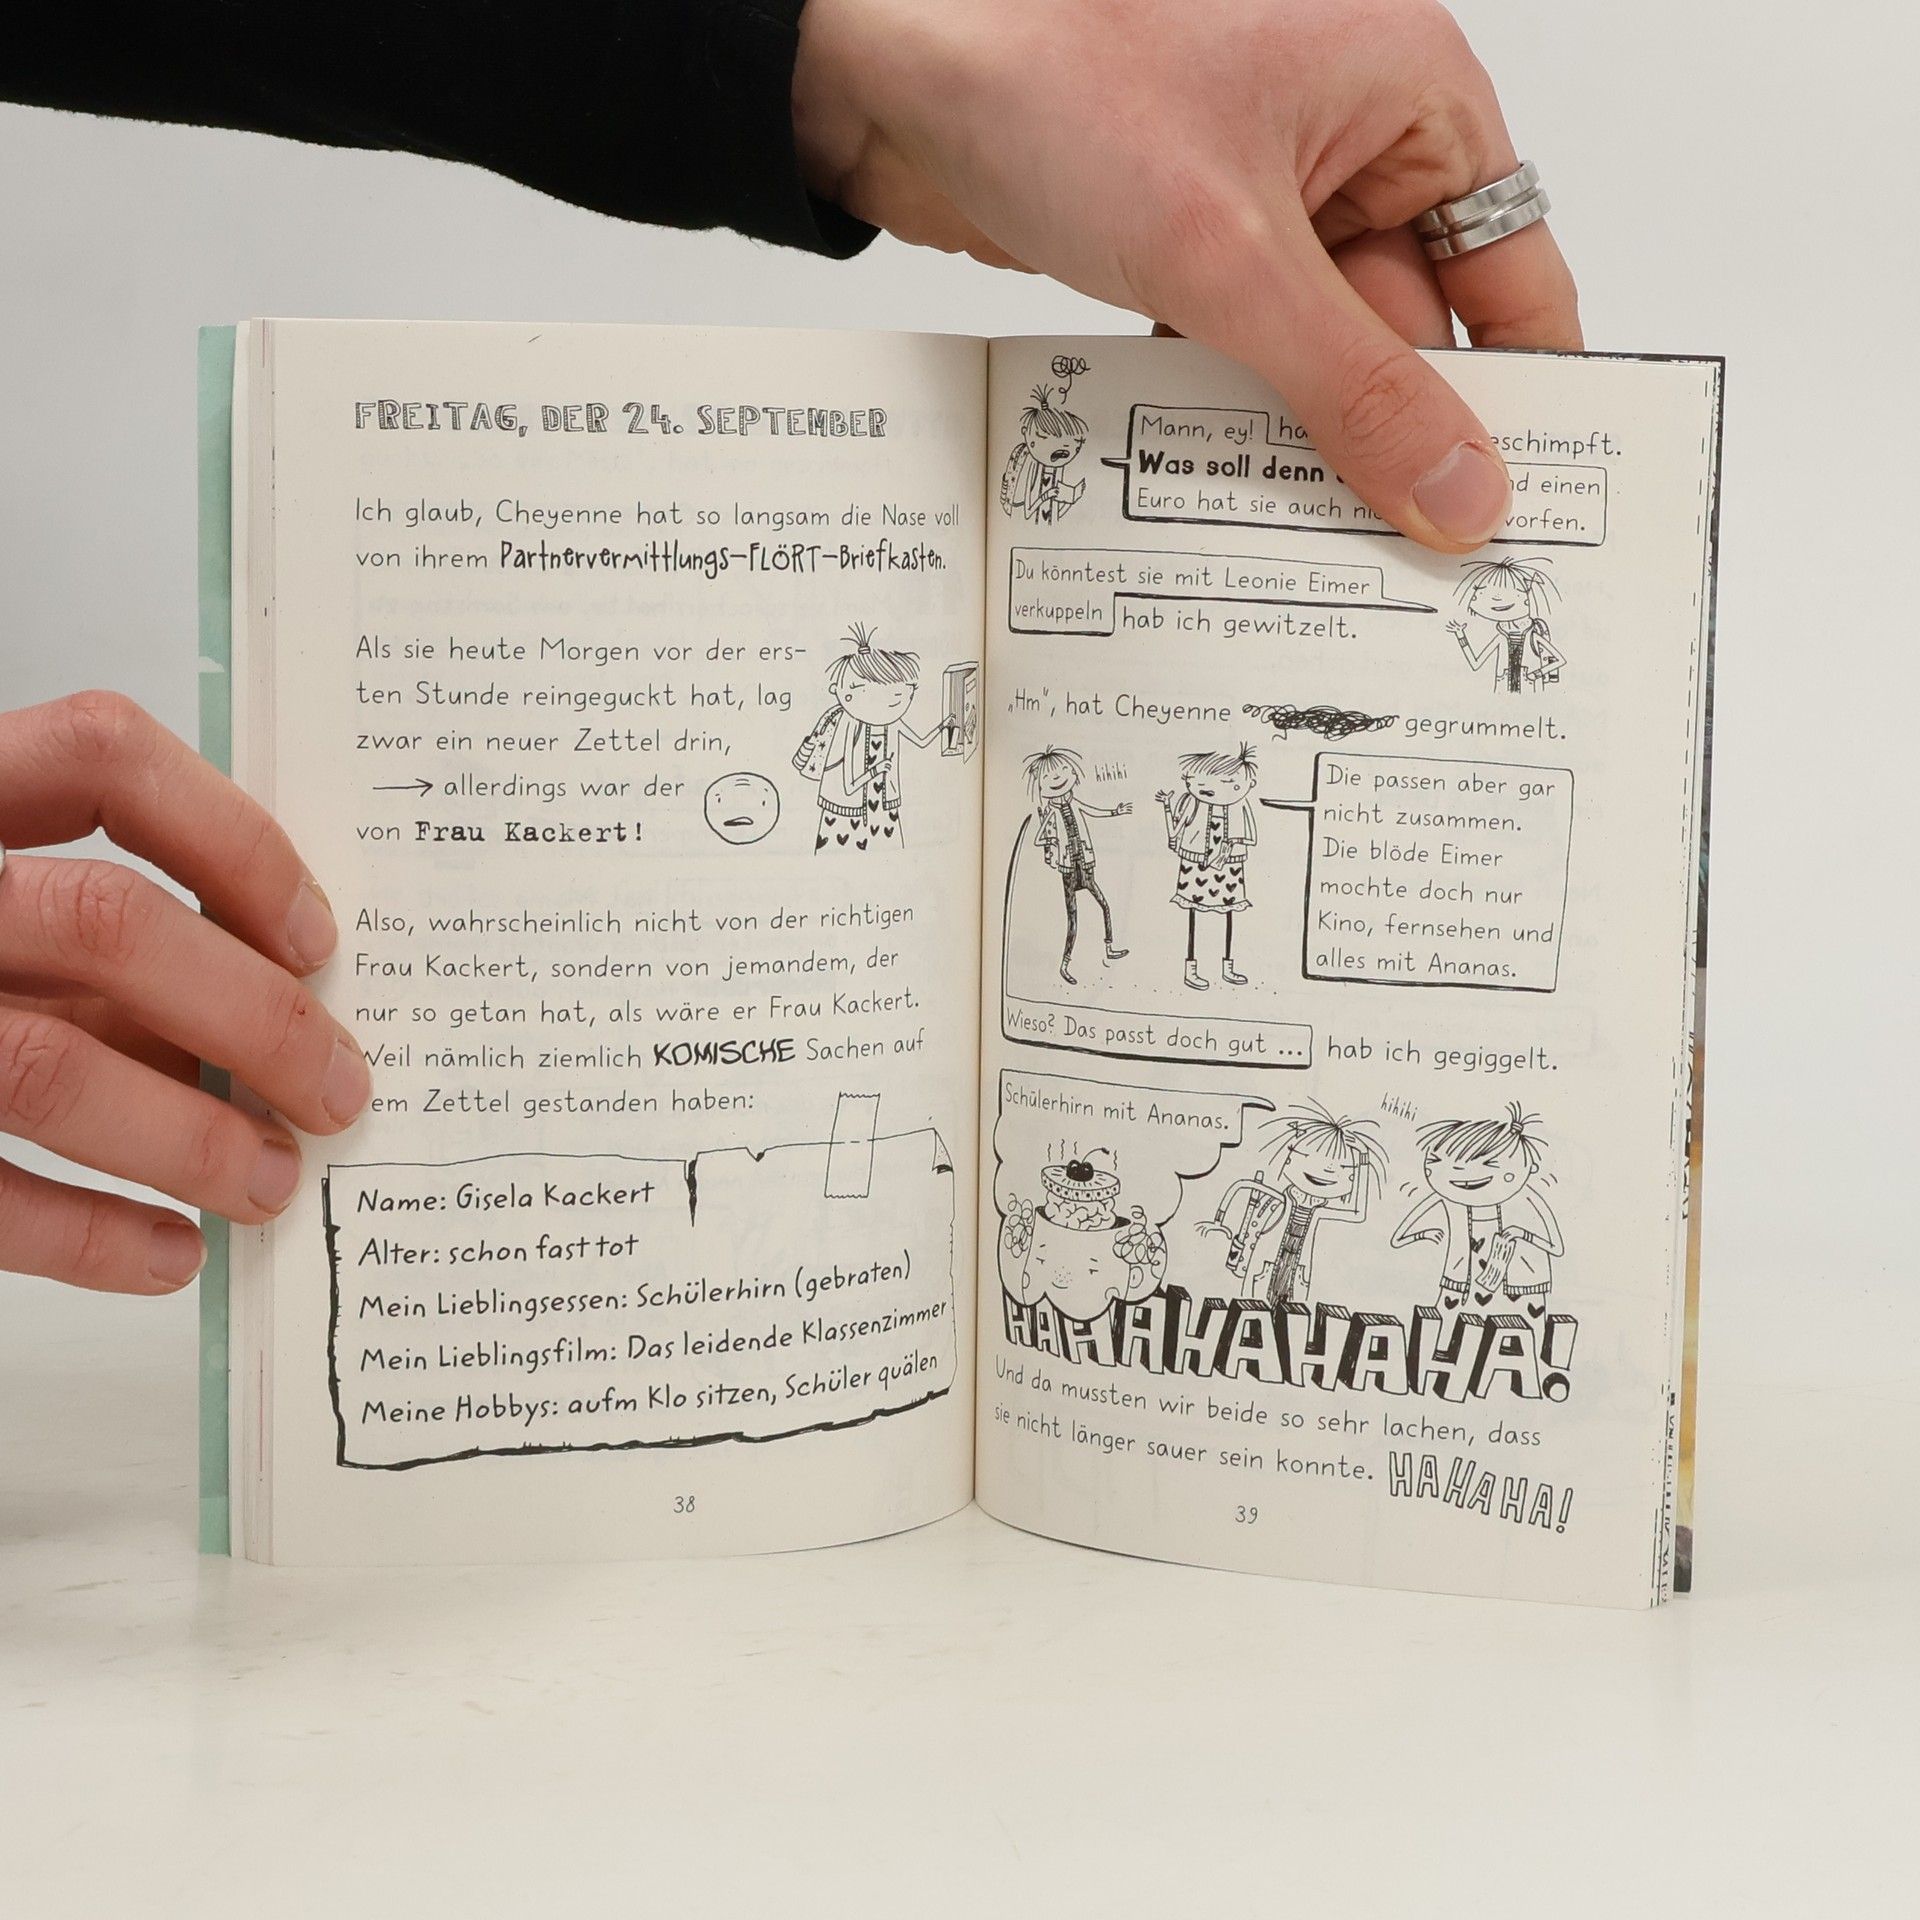 FREITAG, DER 24. SEPTEMBER
Ich glaub, Cheyenne hat so langsam die Nase voll
von ihrem Partnervermittlungs-FLÖRT-Briefkasten.
Als sie heute Morgen vor der ers-
ten Stunde reingeguckt hat, lag
zwar ein neuer Zettel drin,
→ allerdings war der
von Frau Kackert!
Also, wahrscheinlich nicht von der richtigen
Frau Kackert, sondern von jemandem, der
nur so getan hat, als wäre er Frau Kackert.
Weil nämlich ziemlich KOMISCHE Sachen auf
em Zettel gestanden haben:
Name: Gisela Kackert
Alter: schon fast tot
Mein Lieblingsessen: Schülerhirn (gebraten)
Mein Lieblingsfilm: Das leidende Klassenzimmer
Meine Hobbys: aufm Klo sitzen, Schüler quälen
38
Mann, ey! ha eschimpft.
Was soll denn
nd einen
Euro hat sie auch ni vorfen.
Du könntest sie mit Leonie Eimer
verkuppeln hab ich gewitzelt.
„Hm“, hat Cheyenne gegrummelt.
hihihi
Die passen aber gar
nicht zusammen.
Die blöde Eimer
mochte doch nur
Kino, fernsehen und
alles mit Ananas.
Wieso? Das passt doch gut ... hab ich gegiggelt.
Schülerhirn mit Ananas.
hihihi
HAHAHAHAHAHA!
Und da mussten wir beide so sehr lachen, dass
sie nicht länger sauer sein konnte. HAHAHA!
39